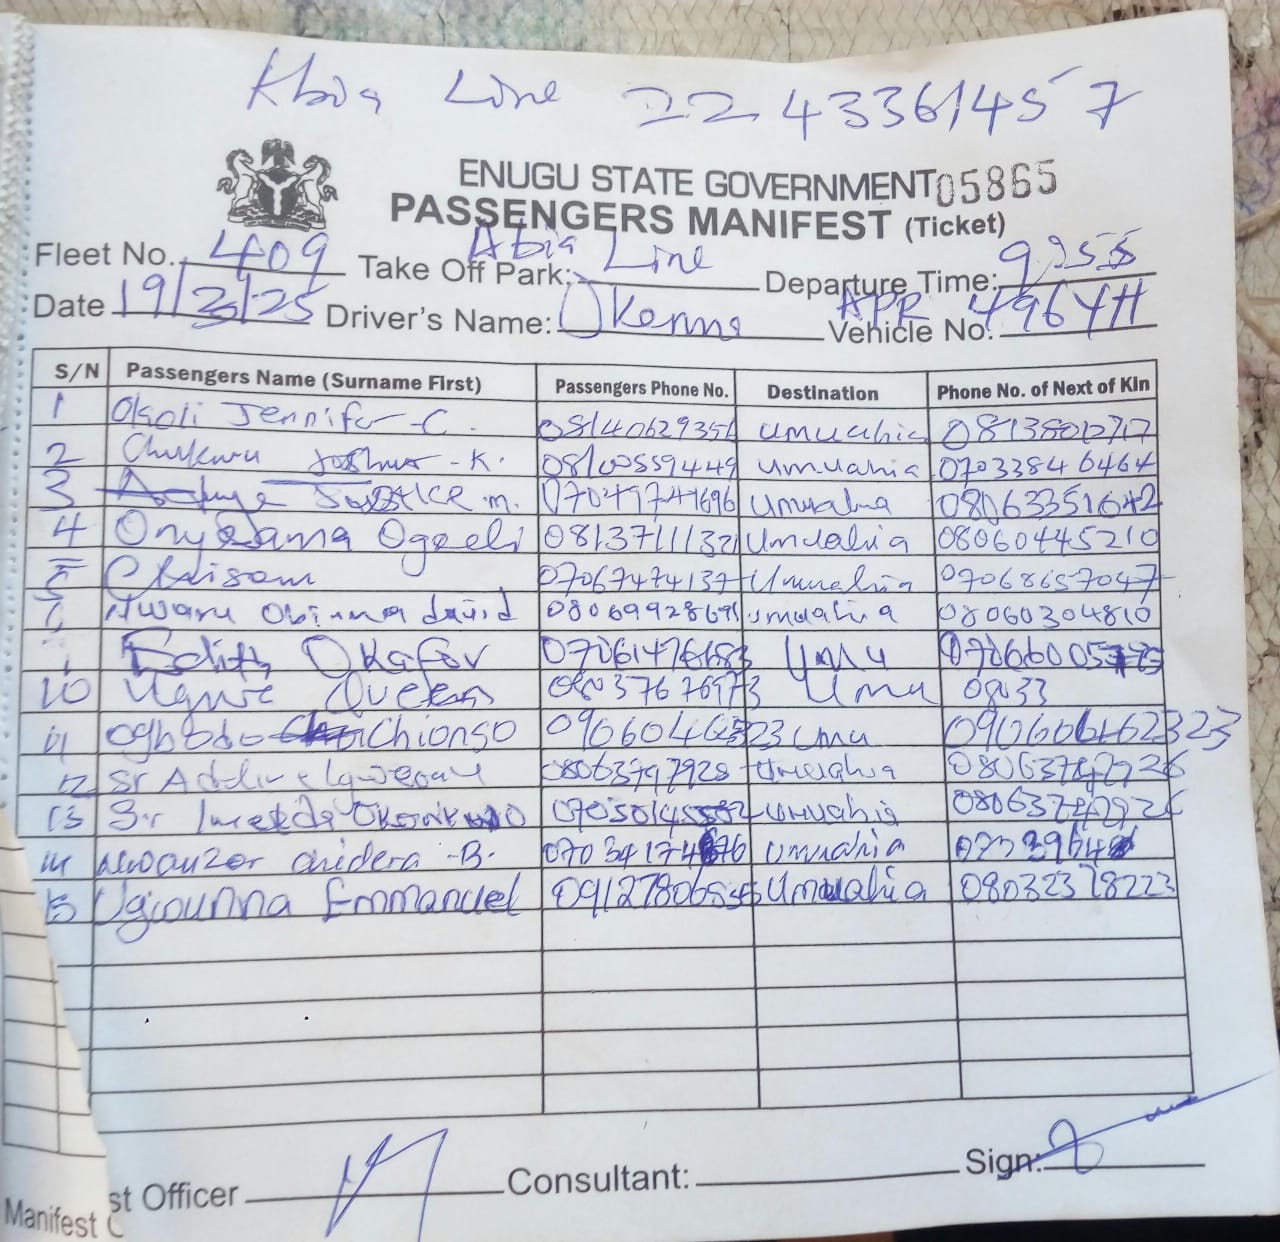 Abia Line 22 43361457
ENUGU STATE GOVERNMENT 05865
PASSENGERS MANIFEST (Ticket)
Fleet No. 409 Take Off Park: Abia Line Departure Time: 9:255
Date 19/3/25 Driver's Name: Okenna Vehicle No: APR 496YH
S/N Passengers Name (Surname First) Passengers Phone No. Destination Phone No. of Next of Kin
1 Okoli Jennifer C. 08140629351 Umuahia
2 Chukwu Joshua - K. 08100559449 Umuahia 07033846464
3 Justice m. 07049744696 Umuahia 08063351642
4 Onyeama Ogechi 08137111321 Umuahia 08060445210
5 Chisom 07067474137 Umuahia 09068657047
Nwaru Obinna david 08069928691 Umuahia 08060304810
Edith Okafor 07061476683 Umu
10 Ugwu Queen 08037676973 Umu 08033
11 Ogbodo Chionso Umu 090606462323
12 Sr 08063797928 Umuahia
13 Sr Umuahia
14 Nwauzor chidera - B. Umuahia
15 Ugwunna Emmanuel Umuahia 08032378223
st Officer Consultant: Sign:
Manifest